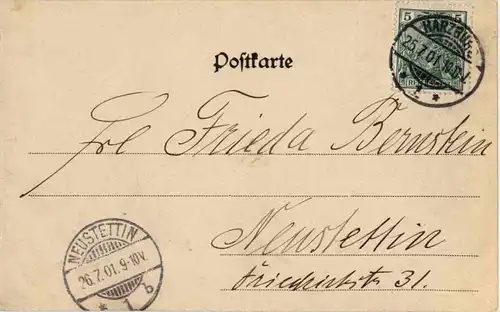 5 5
HARZBURG
25.7.01.9-10V.
* 1 *
c
Postkarte
Frl Frieda Bernstein
Neustettin
Friedrichstr 31.
NEUSTETTIN
26.7.01.9-10V.
* 1 b